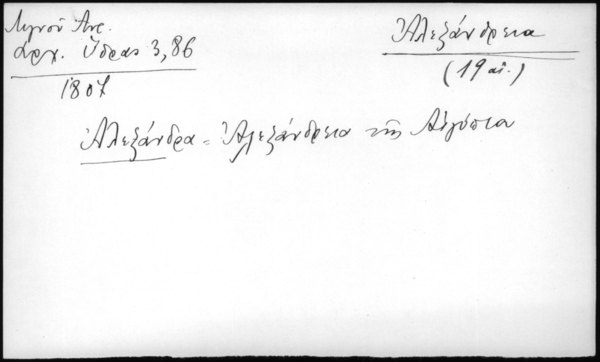 Λιγνού Αντ.
ἀρχ. Ὕδρας 3,86
1807
Ἀλεξάνδρεια
(19 αἰ.)
Ἀλεξάνδρα = Ἀλεξάνδρεια τῆς Αἰγύπτου